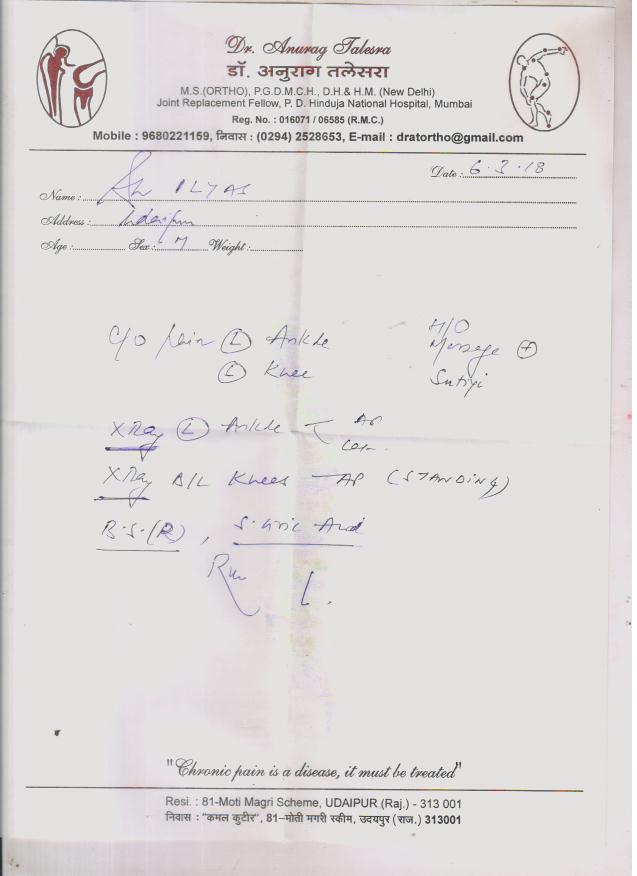 Dr. Anurag Talesra
डॉ. अनुराग तलेसरा
M.S.(ORTHO), P.G.D.M.C.H., D.H.& H.M. (New Delhi)
Joint Replacement Fellow, P. D. Hinduja National Hospital, Mumbai
Reg. No. : 016071 / 06585 (R.M.C.)
Mobile : 9680221159, निवास : (0294) 2528653, E-mail : dratortho@gmail.com
Date : 6.3.18
Name : ILYAS
Address : Udaipur
Age : Sex : M Weight :
C/O Pain (L) Ankle
(L) Knee
H/O
Massage (+)
X Ray (L) Ankle < AP
Lat.
X Ray B/L Knees — AP (STANDING)
B.S.(R), S. Uric Acid
"Chronic pain is a disease, it must be treated"
Resi. : 81-Moti Magri Scheme, UDAIPUR (Raj.) - 313 001
निवास : "कमल कुटीर", 81–मोती मगरी स्कीम, उदयपुर (राज.) 313001